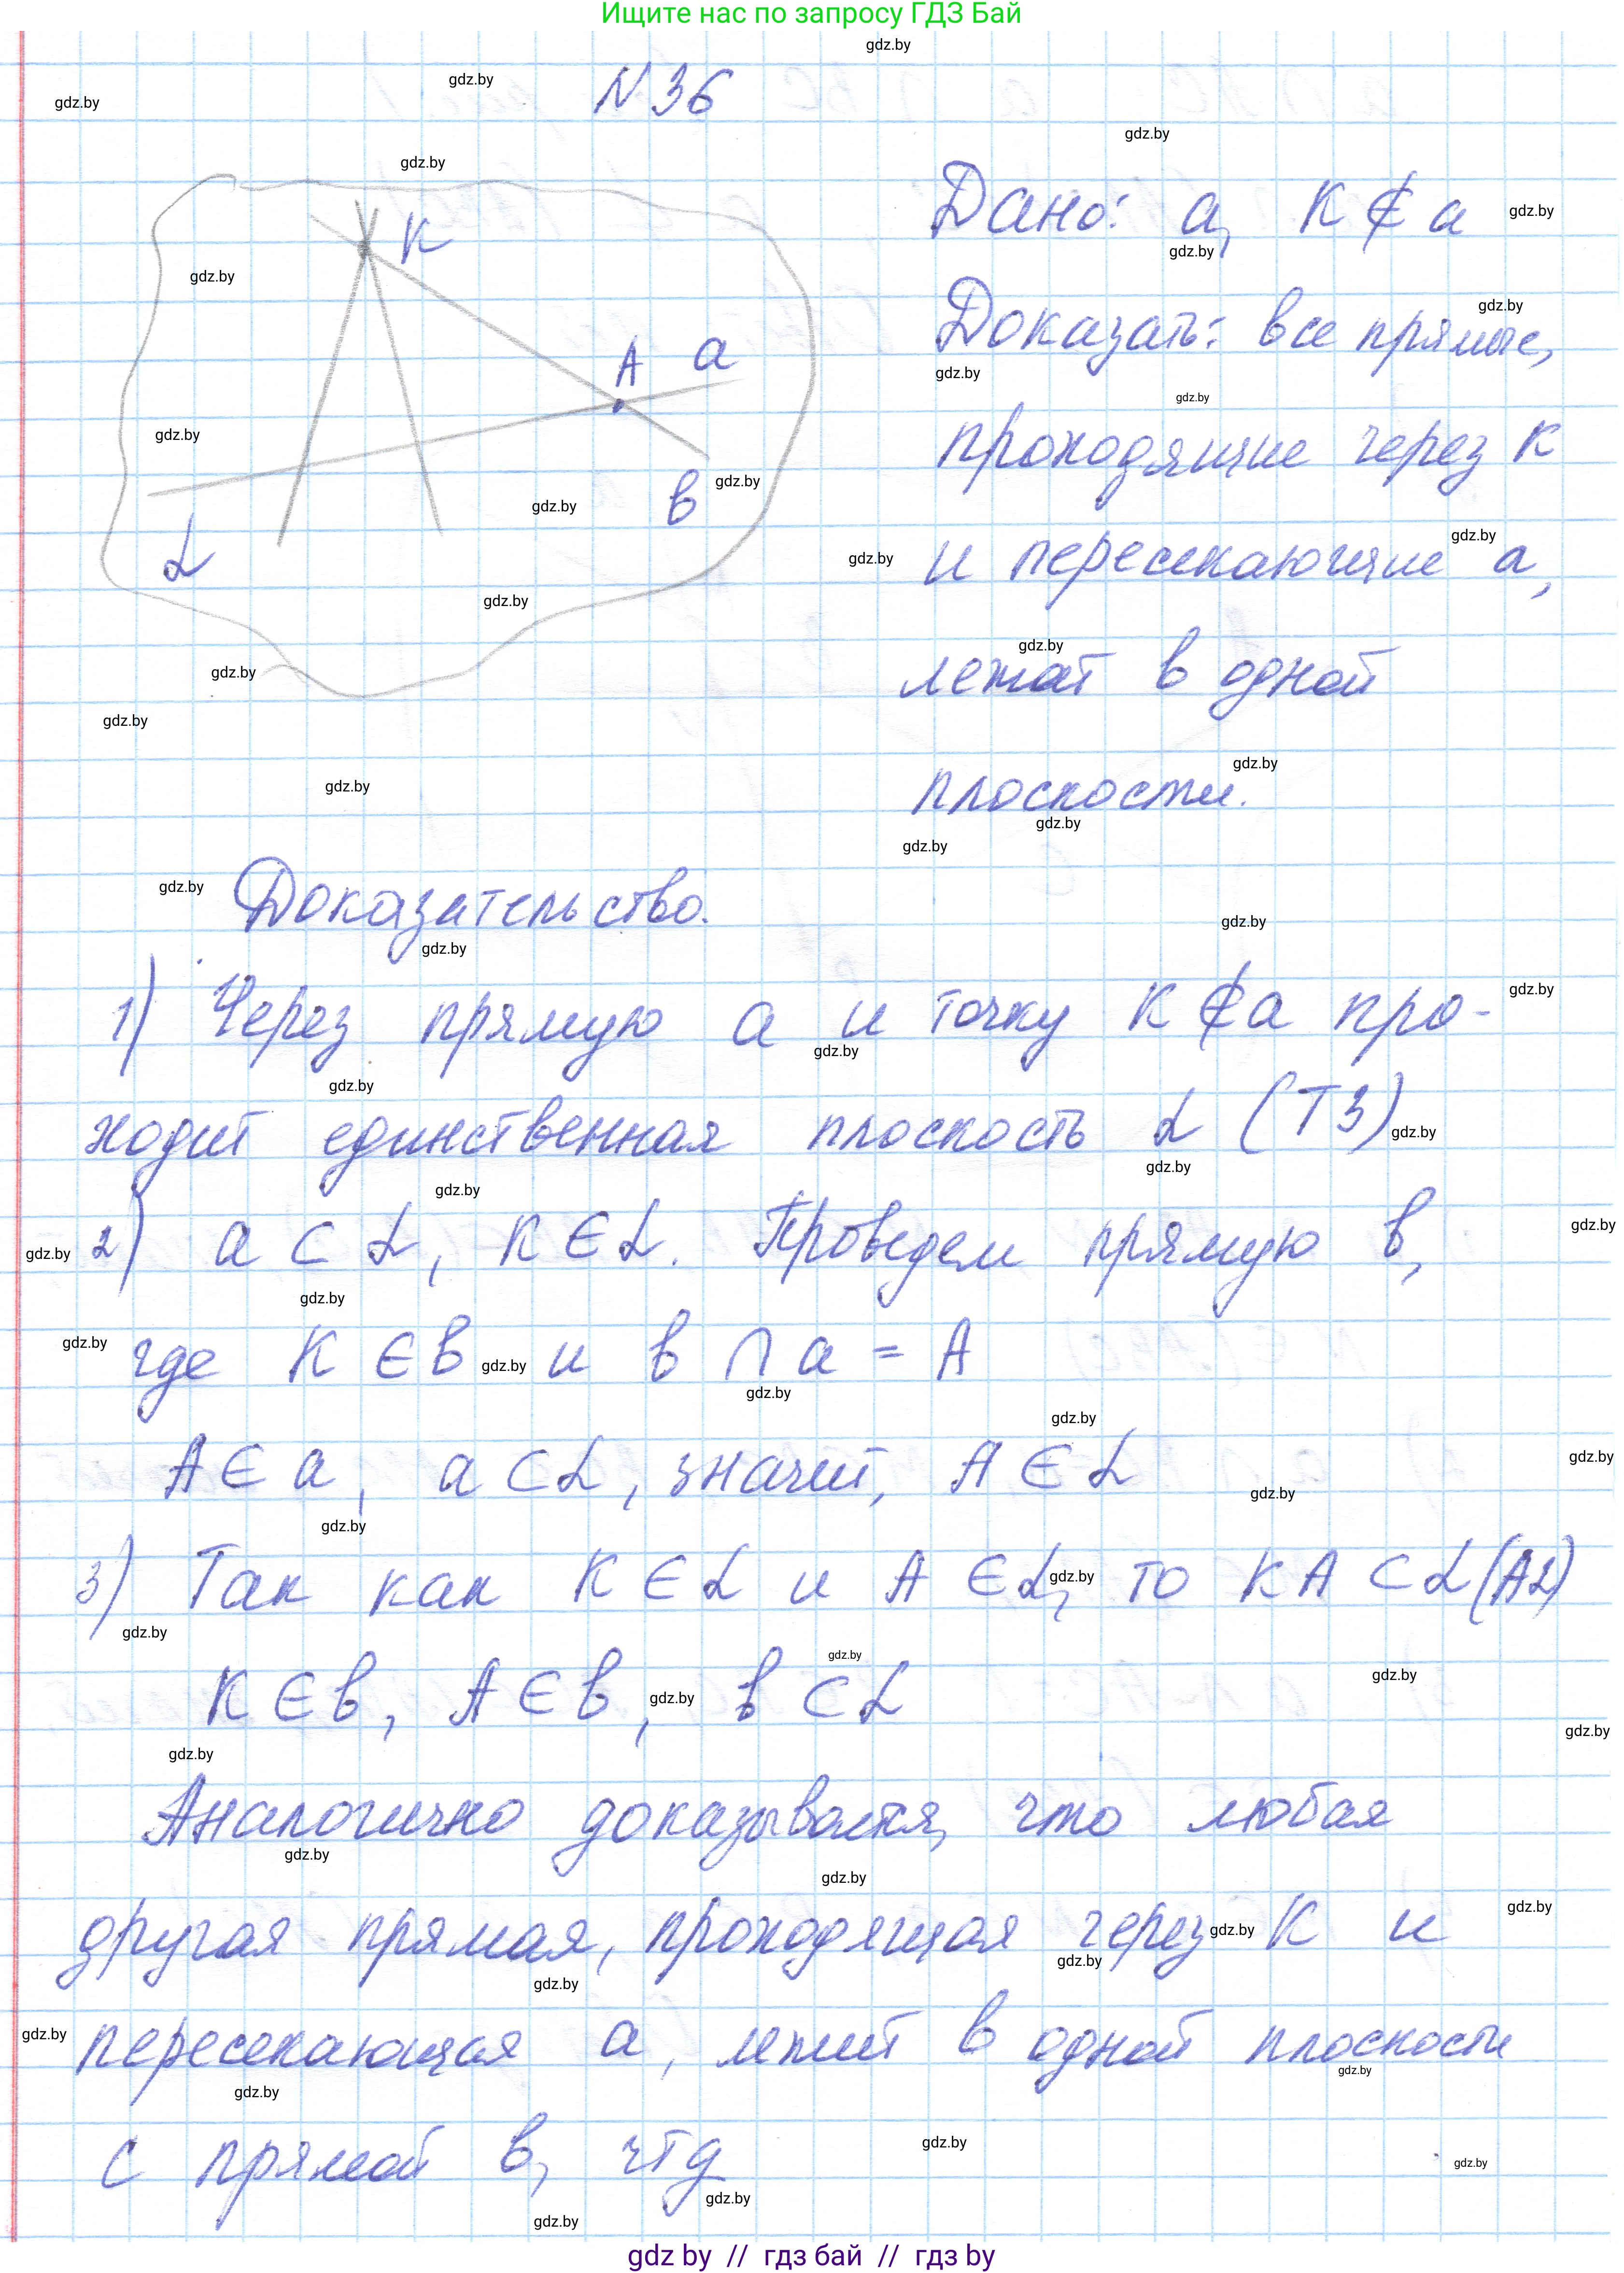 Ищите нас по запросу ГДЗ Бай
N 36
К
А а
в
α
Дано: а, К ∉ а
Доказать: все прямые,
проходящие через К
и пересекающие а,
лежат в одной
плоскости.
Доказательство.
1) Через прямую а и точку К ∉ а про-
ходит единственная плоскость α (Т3)
2) а ⊂ α, К ∈ α. Проведем прямую в,
где К ∈ в и в ∩ а = А
А ∈ а, а ⊂ α, значит, А ∈ α
3) Так как К ∈ α и А ∈ α, то КА ⊂ α (А2)
К ∈ в, А ∈ в, в ⊂ α
Аналогично доказывается, что любая
другая прямая, проходящая через К и
пересекающая а, лежит в одной плоскости
с прямой в, чтд
gdz by // гдз бай // гдз by